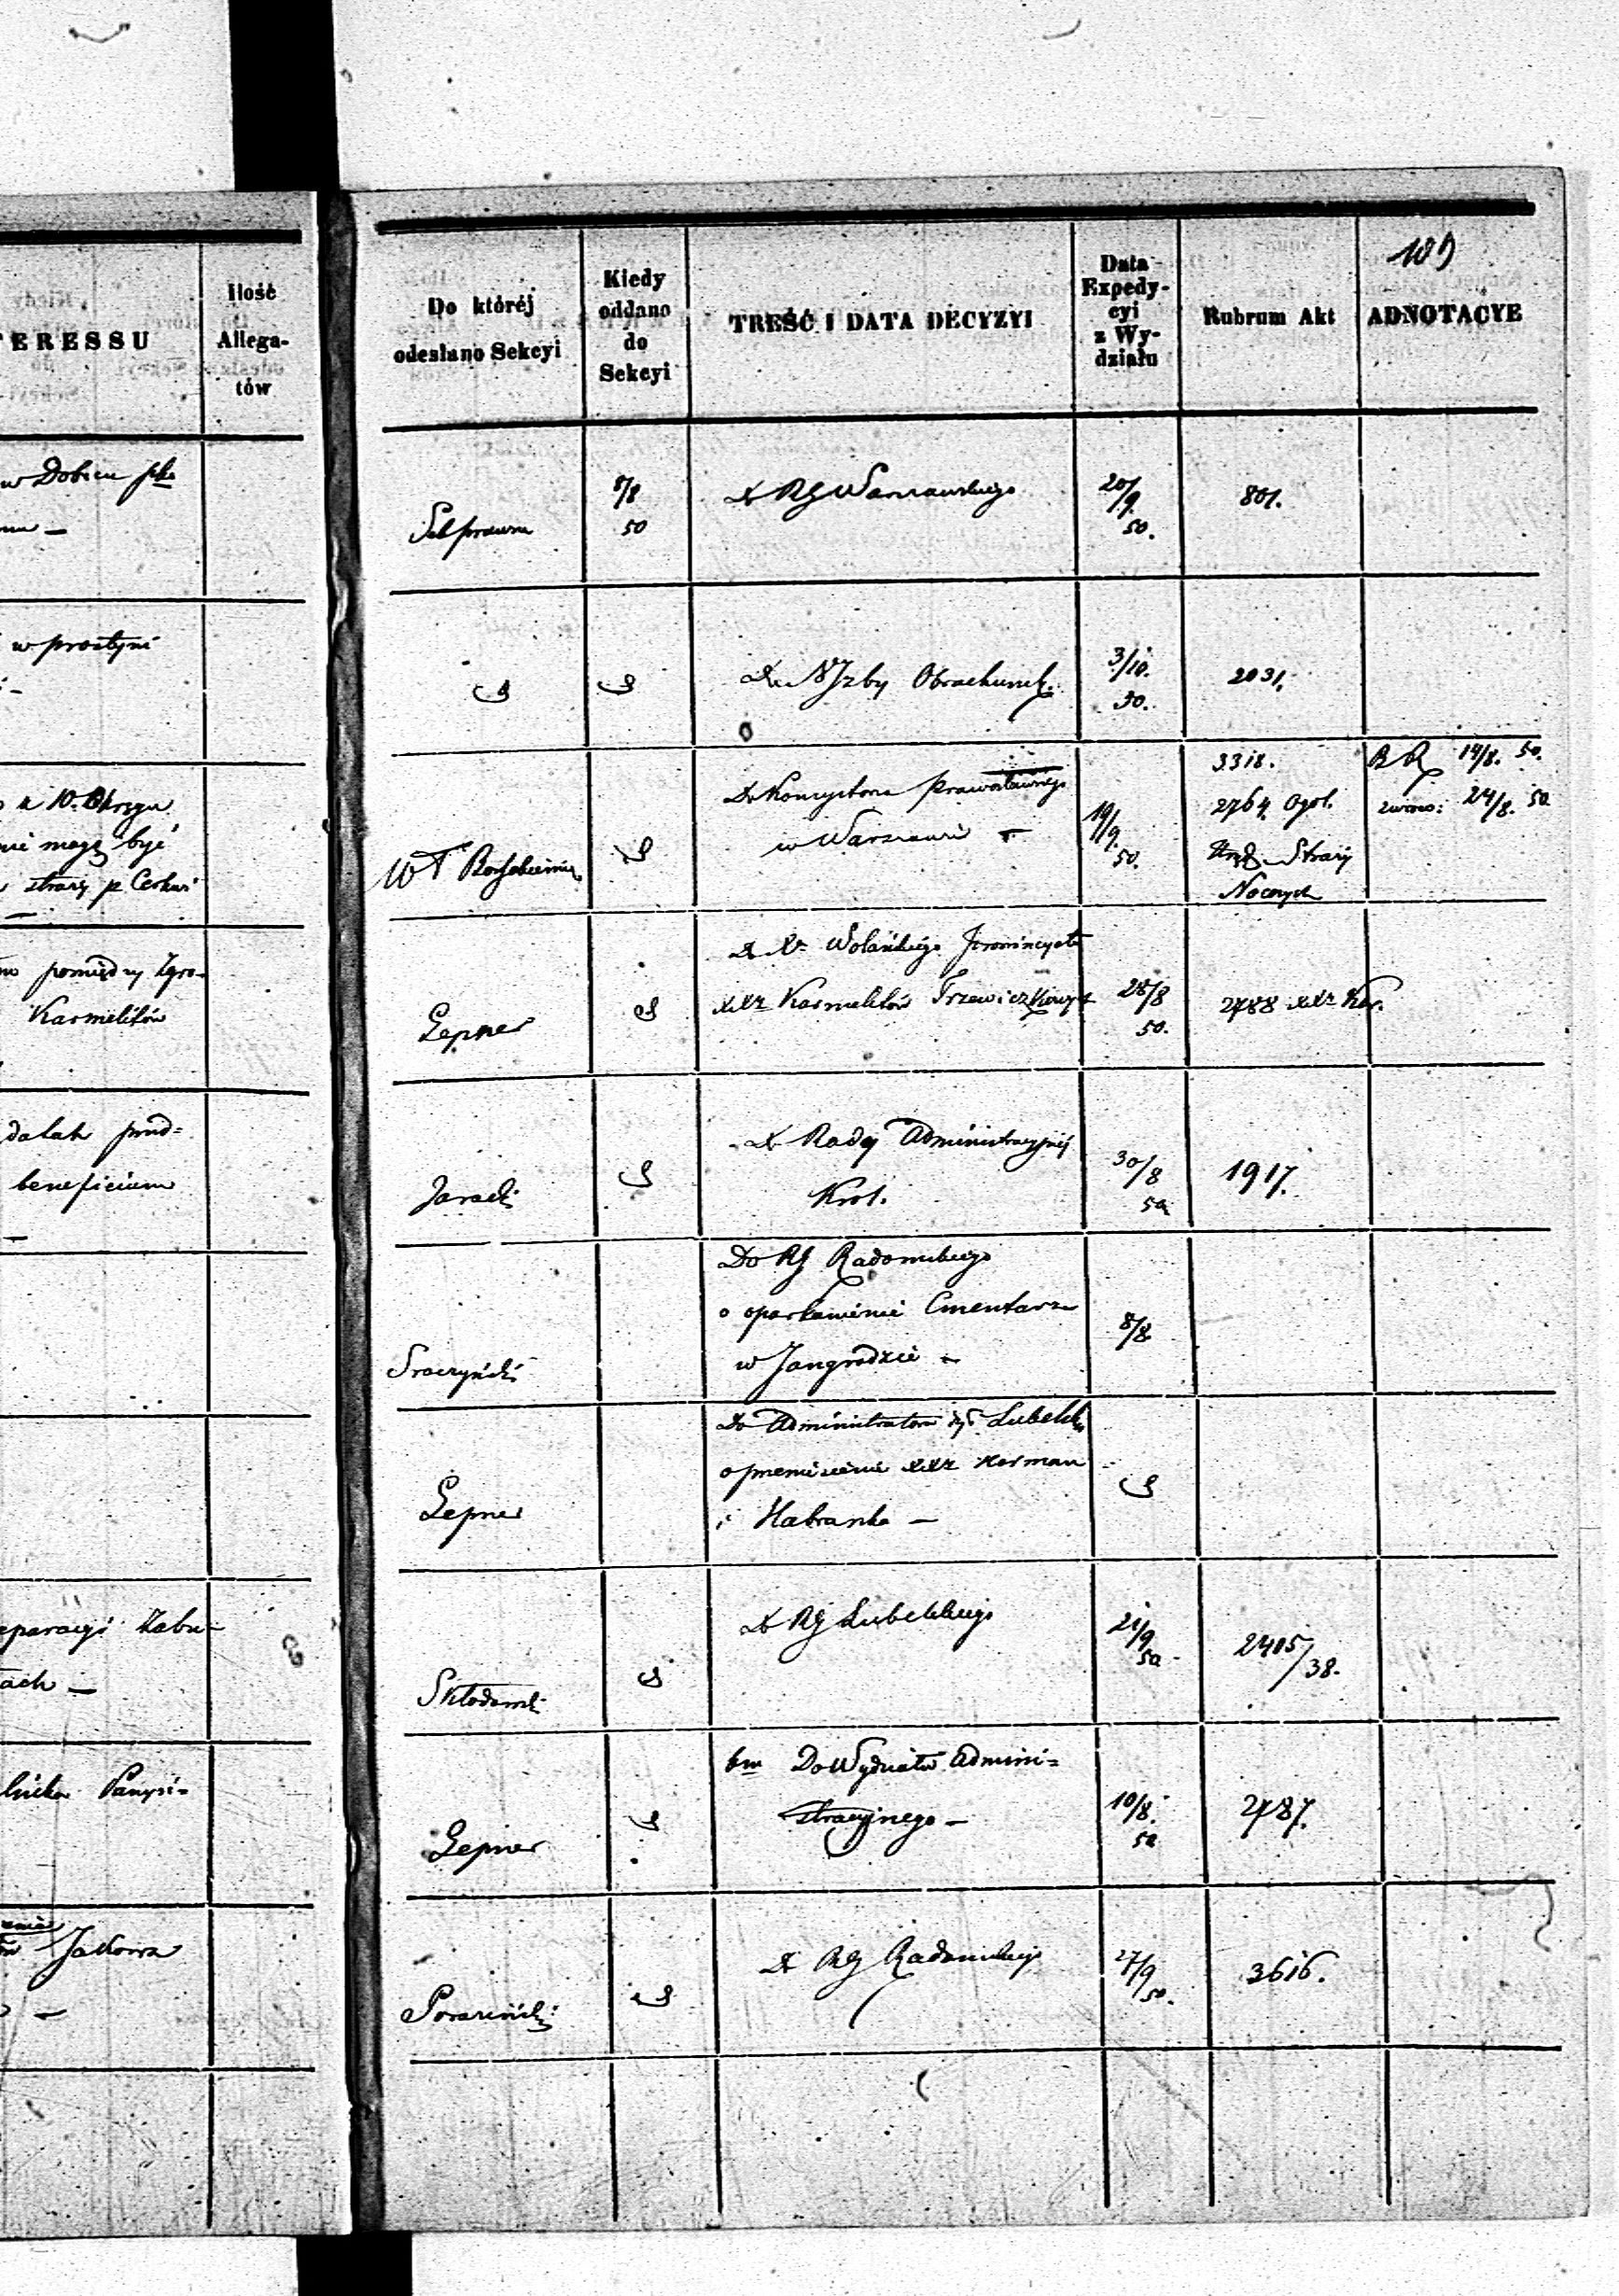 TERESSU
Ilość
Allega-
tów
w Dobiciu
w prostyni
a 10. Okręgu
nie mogą być
straży p Cerkwi
pomiędzy Zgro-
Karmelitów
beneficium
eparacyi Zabu-
tach —
Jakowa
109
Do któréj
odesłano Sekcyi
Kiedy
oddano
do
Sekcyi
TREŚĆ I DATA DECYZYI
Data
Expedy-
cyi
z Wy-
działu
Rubrum Akt
ADNOTACYE
Sek prawna
8/8
50
Do RG Warszawskiego
20/9.
50.
801.
Do N Izby Obrachunk.
3/10.
50.
2031.
Do Konsystorza Prawosławnego
w Warszawie —
19/9.
50.
3318.
2764. Ogól.
Straży
Nocnych
14/8. 50.
24/8. 50
Lepner
Do Xa Wolańskiego Prowincyała
XXr Karmelitów Trzewiczkowych
28/8
50.
2788 XXr Kar.
Jaracki
Do Rady Administracyjnéj
Król.
30/8
50.
1917.
Do RG Radomskiego
o oparkanienie Cmentarza
w Jangrodzie —
8/8
Lepner
Do Administratora dyc. Lubelsk.
o przeniesienie XXr Herman
i Habranka —
Skłodowski
Do RG Lubelskiego
21/9
50
2405/38.
Lepner
bm Do Wydziału Admini-
stracyjnego —
10/8.
50
2787.
Do RG Radomskiego
27/9
50.
3616.